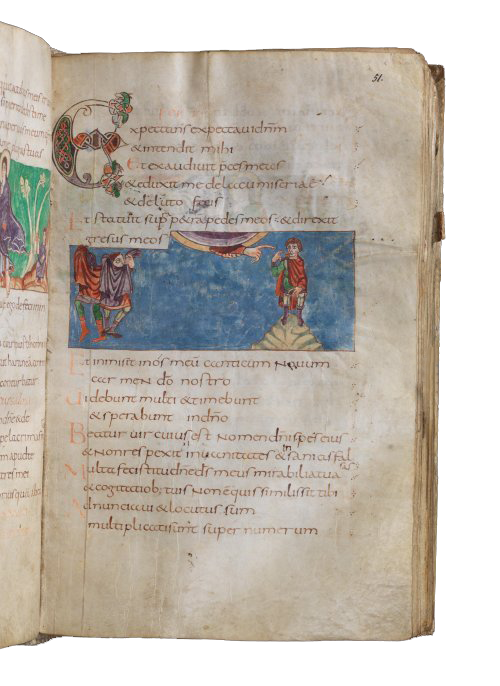 51.
Expectans expectavi dnm
& intendit mihi
Et exaudivit pces meas
& eduxit me de lacu miseriae
& de luto fecis
Et statuit sup p&ra pedes meos & direxit
gresus meos
Et inmisit in os meū canticum novum
carmen dō nostro
Videbunt multi & timebunt
& sperabunt in dnō
Beatus vir cuius est nomen dnī spes eius
& non respexit in vanitates & insanias fal
sas
Multa fecisti tu dnē ds meus mirabilia tua
& cogitationib; tuis non ē quis similis sit tibi
Adnunciavi & locutus sum
multiplicati sunt super numerum